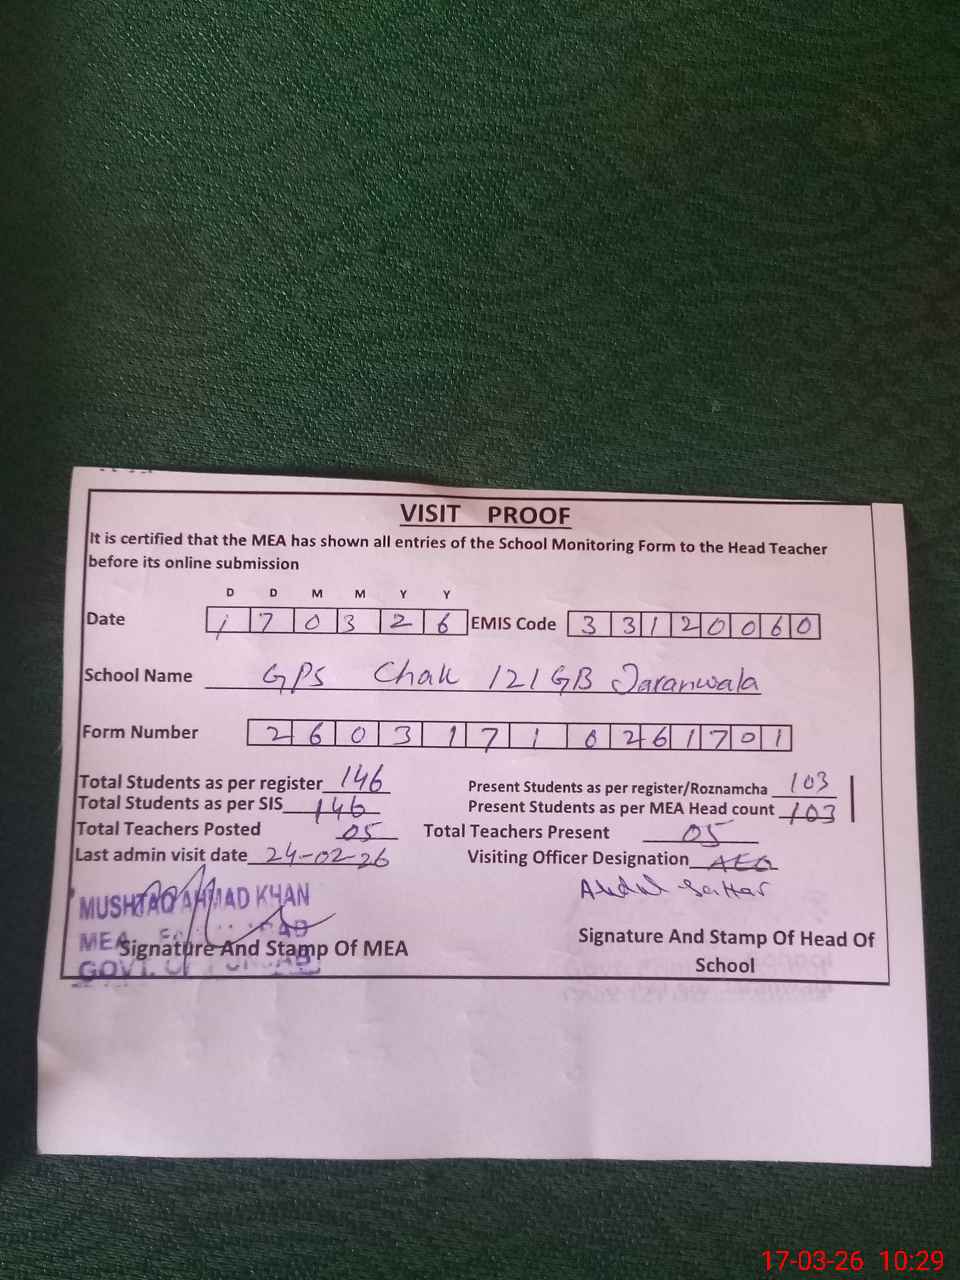 VISIT PROOF
It is certified that the MEA has shown all entries of the School Monitoring Form to the Head Teacher
before its online submission
D D M M Y Y
Date 1 7 0 3 2 6 EMIS Code 3 3 1 2 0 0 6 0
School Name GPS Chak 121 GB Jaranwala
Form Number 2 6 0 3 1 7 1 0 2 6 1 7 0 1
Total Students as per register 146 Present Students as per register/Roznamcha 103
Total Students as per SIS 146 Present Students as per MEA Head count 103
Total Teachers Posted 05 Total Teachers Present 05
Last admin visit date 24-02-26 Visiting Officer Designation AEO
MUSHTAQ AHMAD KHAN Abdul Sattar
MEA
Signature And Stamp Of MEA Signature And Stamp Of Head Of
GOVT. OF PUNJAB School
17-03-26 10:29